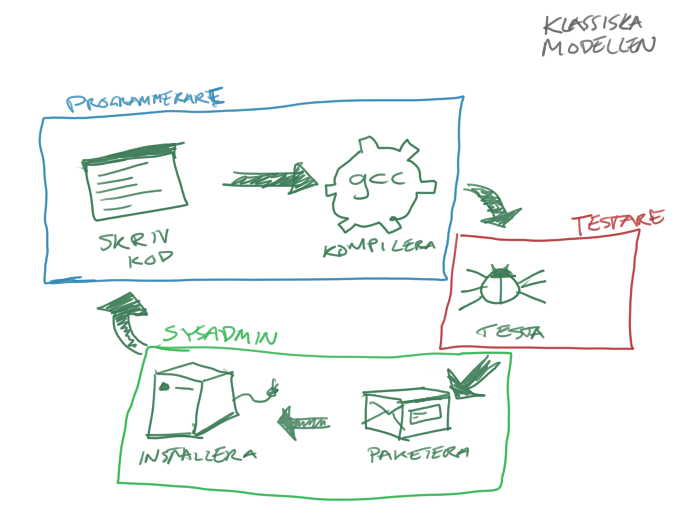 KLASSISKA
MODELLEN
PROGRAMMERARE
gcc
SKRIV
KOD
KOMPILERA
TESTARE
TESTA
SYSADMIN
INSTALLERA
PAKETERA